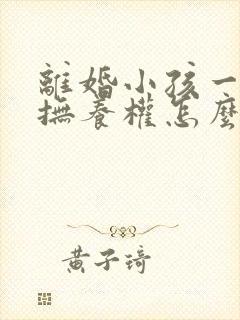 離婚小孩一
撫養權怎麼
黃子琦